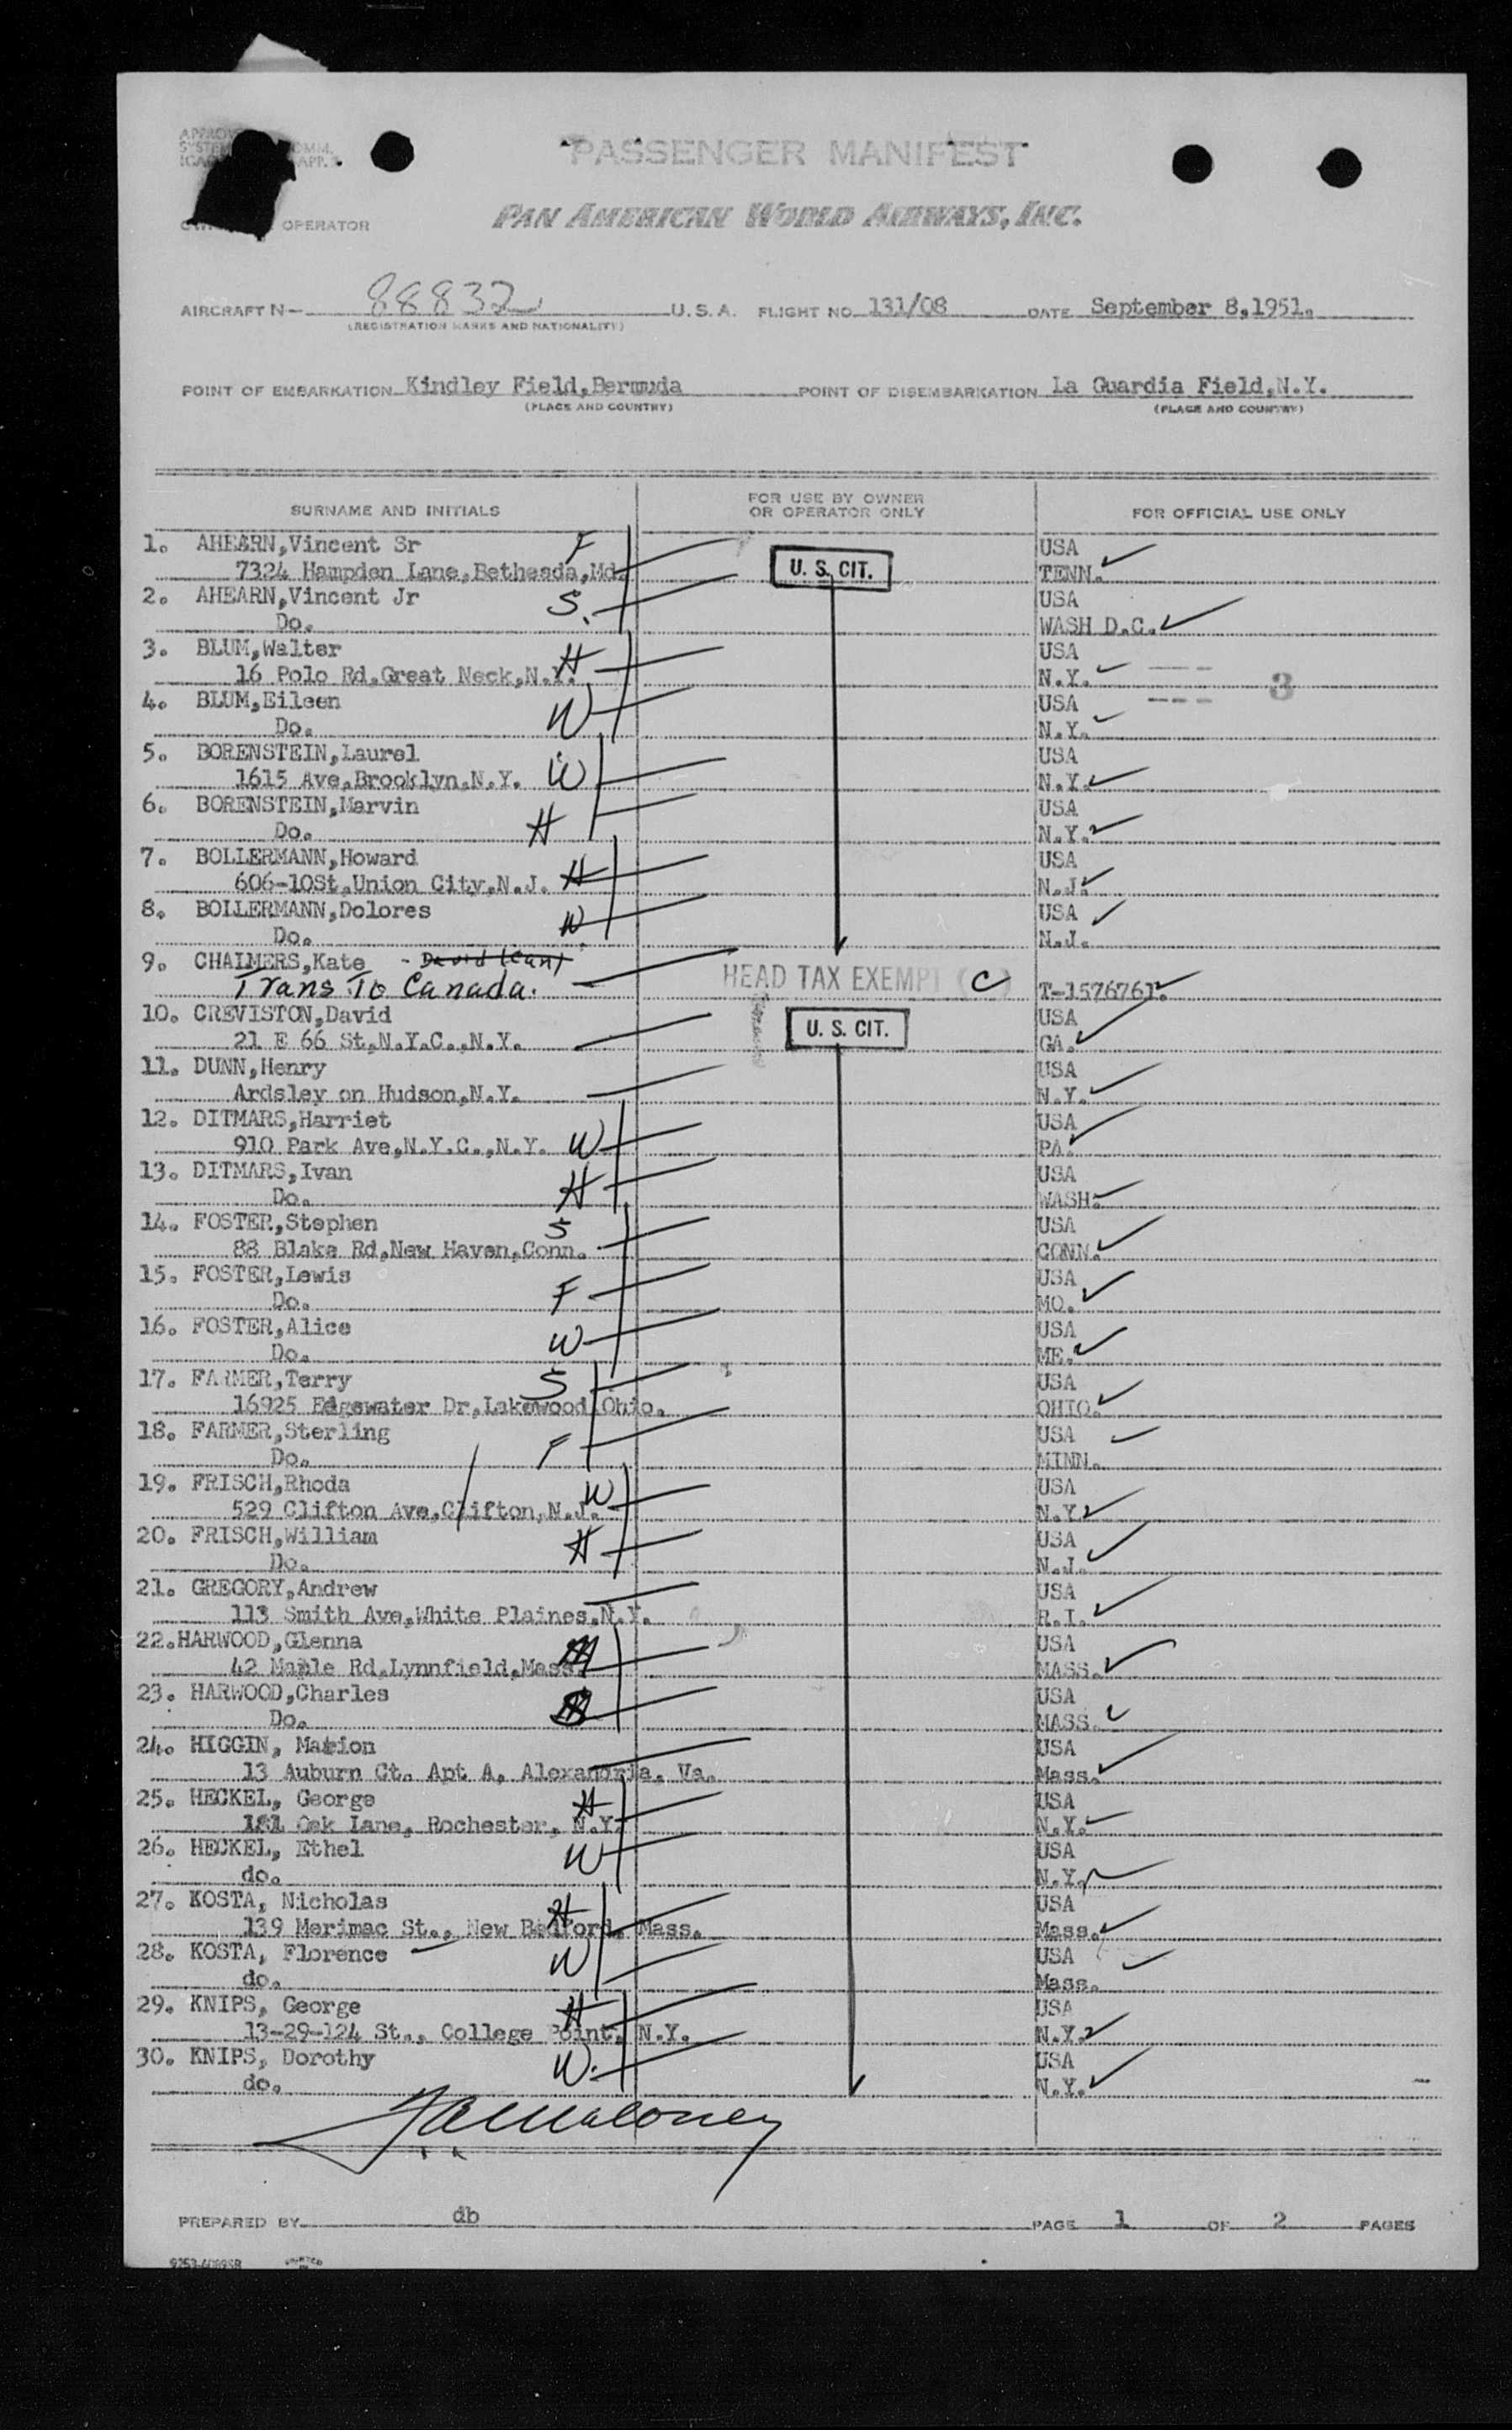 PASSENGER MANIFEST
PAN AMERICAN WORLD AIRWAYS, INC.
OPERATOR
AIRCRAFT N- 88832 U.S.A. FLIGHT NO. 131/08 DATE September 8,1951.
(REGISTRATION MARKS AND NATIONALITY)
POINT OF EMBARKATION Kindley Field,Bermuda POINT OF DISEMBARKATION La Guardia Field,N.Y.
(PLACE AND COUNTRY) (PLACE AND COUNTRY)
SURNAME AND INITIALS FOR USE BY OWNER OR OPERATOR ONLY FOR OFFICIAL USE ONLY
1. AHEARN,Vincent Sr F USA
7324 Hampden Lane,Bethesda,Md. U. S. CIT. TENN.
2. AHEARN,Vincent Jr S. USA
Do. WASH D.C.
3. BLUM,Walter H USA
16 Polo Rd,Great Neck,N.Y. N.Y. 3
4. BLUM,Eileen W USA
Do. N.Y.
5. BORENSTEIN,Laurel W USA
1615 Ave,Brooklyn,N.Y. N.Y.
6. BORENSTEIN,Marvin H USA
Do. N.Y.
7. BOLLERMANN,Howard H USA
606-10St,Union City,N.J. N.J.
8. BOLLERMANN,Dolores W USA
Do. N.J.
9. CHALMERS,Kate - David (Can)
Trans To Canada. HEAD TAX EXEMPT (C) T-1576761.
10. CREVISTON,David U. S. CIT. USA
21 E 66 St,N.Y.C.,N.Y. GA.
11. DUNN,Henry USA
Ardsley on Hudson,N.Y. N.Y.
12. DITMARS,Harriet USA
910 Park Ave,N.Y.C.,N.Y. W PA.
13. DITMARS,Ivan H USA
Do. WASH.
14. FOSTER,Stephen S USA
88 Blake Rd,New Haven,Conn. CONN.
15. FOSTER,Lewis F USA
Do. MO.
16. FOSTER,Alice W USA
Do. ME.
17. FARMER,Terry S USA
16925 Edgewater Dr,Lakewood,Ohio. OHIO.
18. FARMER,Sterling F USA
Do. MINN.
19. FRISCH,Rhoda W USA
529 Clifton Ave,Clifton,N.J. N.Y.
20. FRISCH,William H USA
Do. N.J.
21. GREGORY,Andrew USA
113 Smith Ave,White Plaines,N.Y. R.I.
22.HARWOOD,Glenna USA
42 Maple Rd,Lynnfield,Mass. MASS.
23. HARWOOD,Charles USA
Do. MASS.
24. HIGGIN, Marion USA
13 Auburn Ct. Apt A, Alexandria, Va. Mass.
25. HECKEL, George H USA
Oak Lane, Rochester, N.Y. N.Y.
26. HECKEL, Ethel W USA
do. N.Y.
27. KOSTA, Nicholas H USA
139 Merimac St., New Bedford, Mass. Mass.
28. KOSTA, Florence W USA
do. Mass.
29. KNIPS, George H USA
13-29-124 St., College Point, N.Y. N.Y.
30. KNIPS, Dorothy W. USA
do. N.Y.
PREPARED BY db PAGE 1 OF 2 PAGES